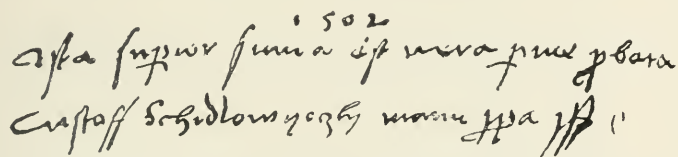 1502
Ista supior suma est vera pme pbata
Cristoff Schidlowyeczky manu ppa